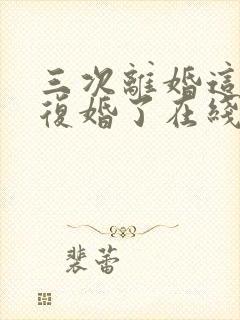 三次離婚這
復婚了在綫
裴蕾